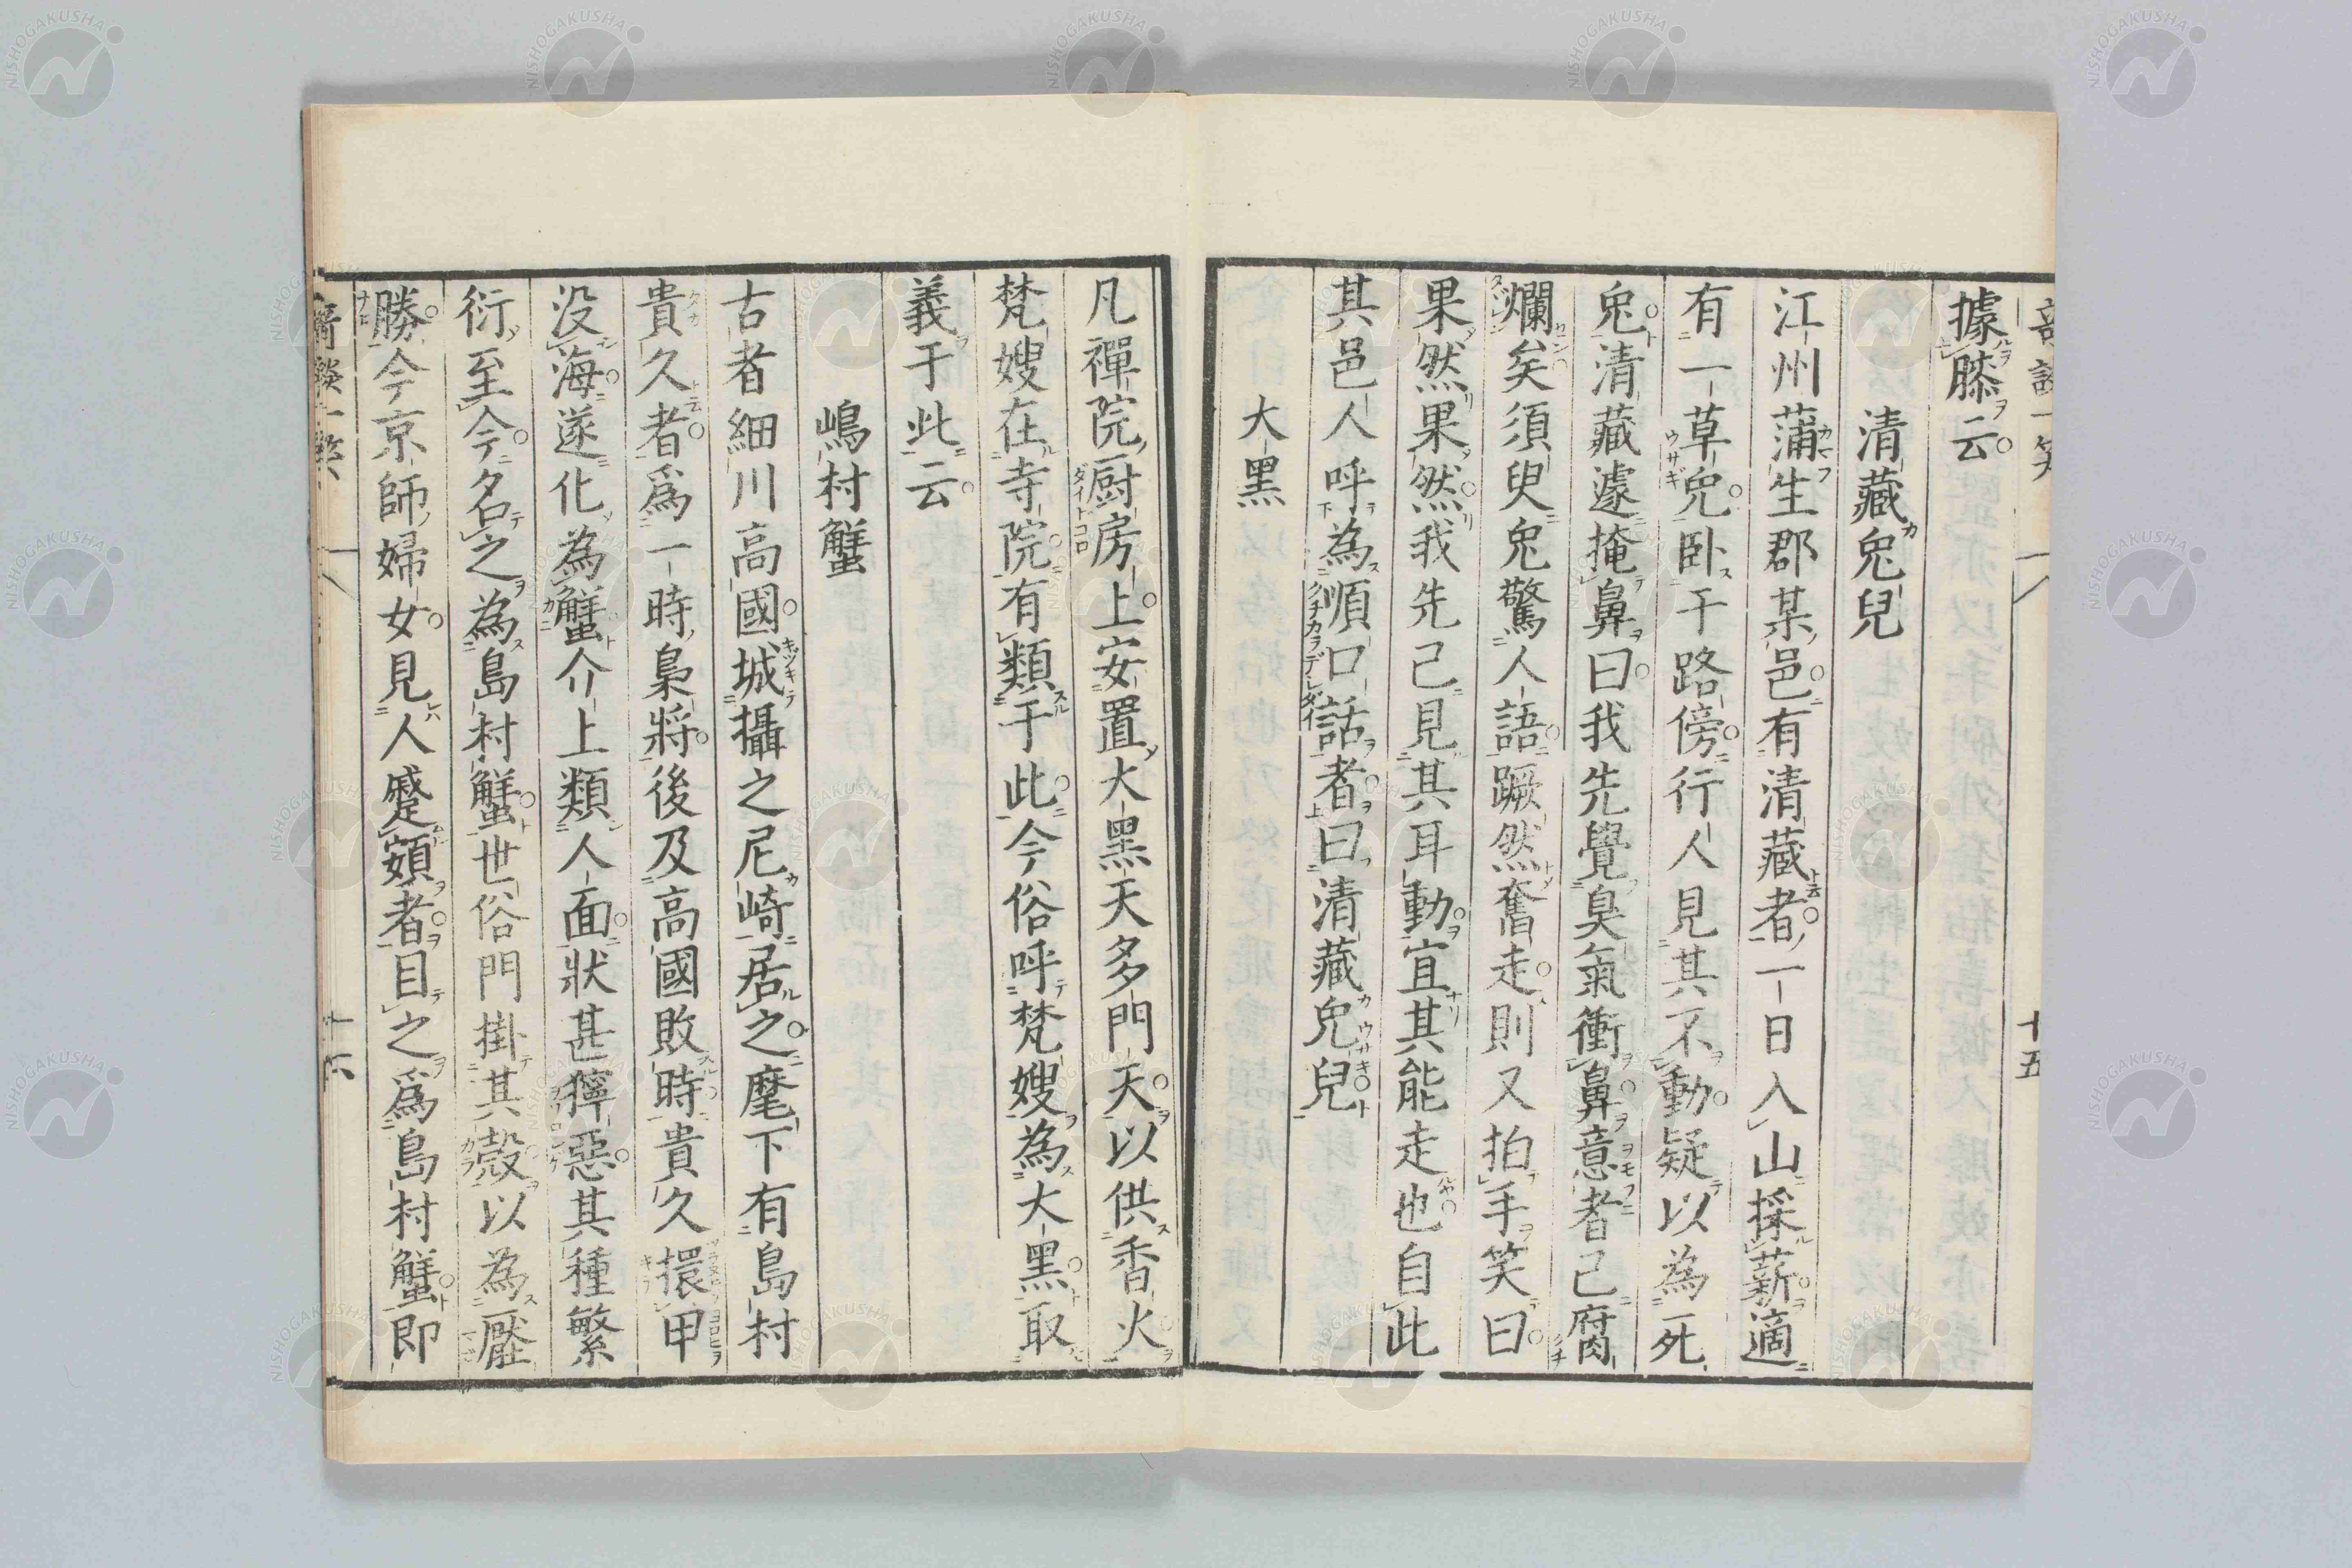 據膝云
清藏兔兒
江州蒲生郡某邑有清藏者一日入山採薪適
有一草兔卧于路傍行人見其不動疑以為死
兔清藏遽掩鼻曰我先覺臭氣衝鼻意者已腐
爛矣須臾兔驚人語蹶然奮走則又拍手笑曰
果然果然我先已見其耳動宜其能走也自此
其邑人呼為順口話者曰清藏兔兒
大黑
十五
凡禪院厨房上安置大黑天多門天以供香火
梵嫂在寺院有類于此今俗呼梵嫂為大黑取
義于此云
嶋村蟹
古者細川高國城攝之尼崎居之麾下有島村
貴久者為一時梟將後及高國敗時貴久擐甲
没海遂化為蟹介上類人面狀甚獰惡其種繁
衍至今名之為島村蟹世俗門掛其殼以為厭
勝今京師婦女見人蹙頞者目之為島村蟹即
十六
NISHOGAKUSHA